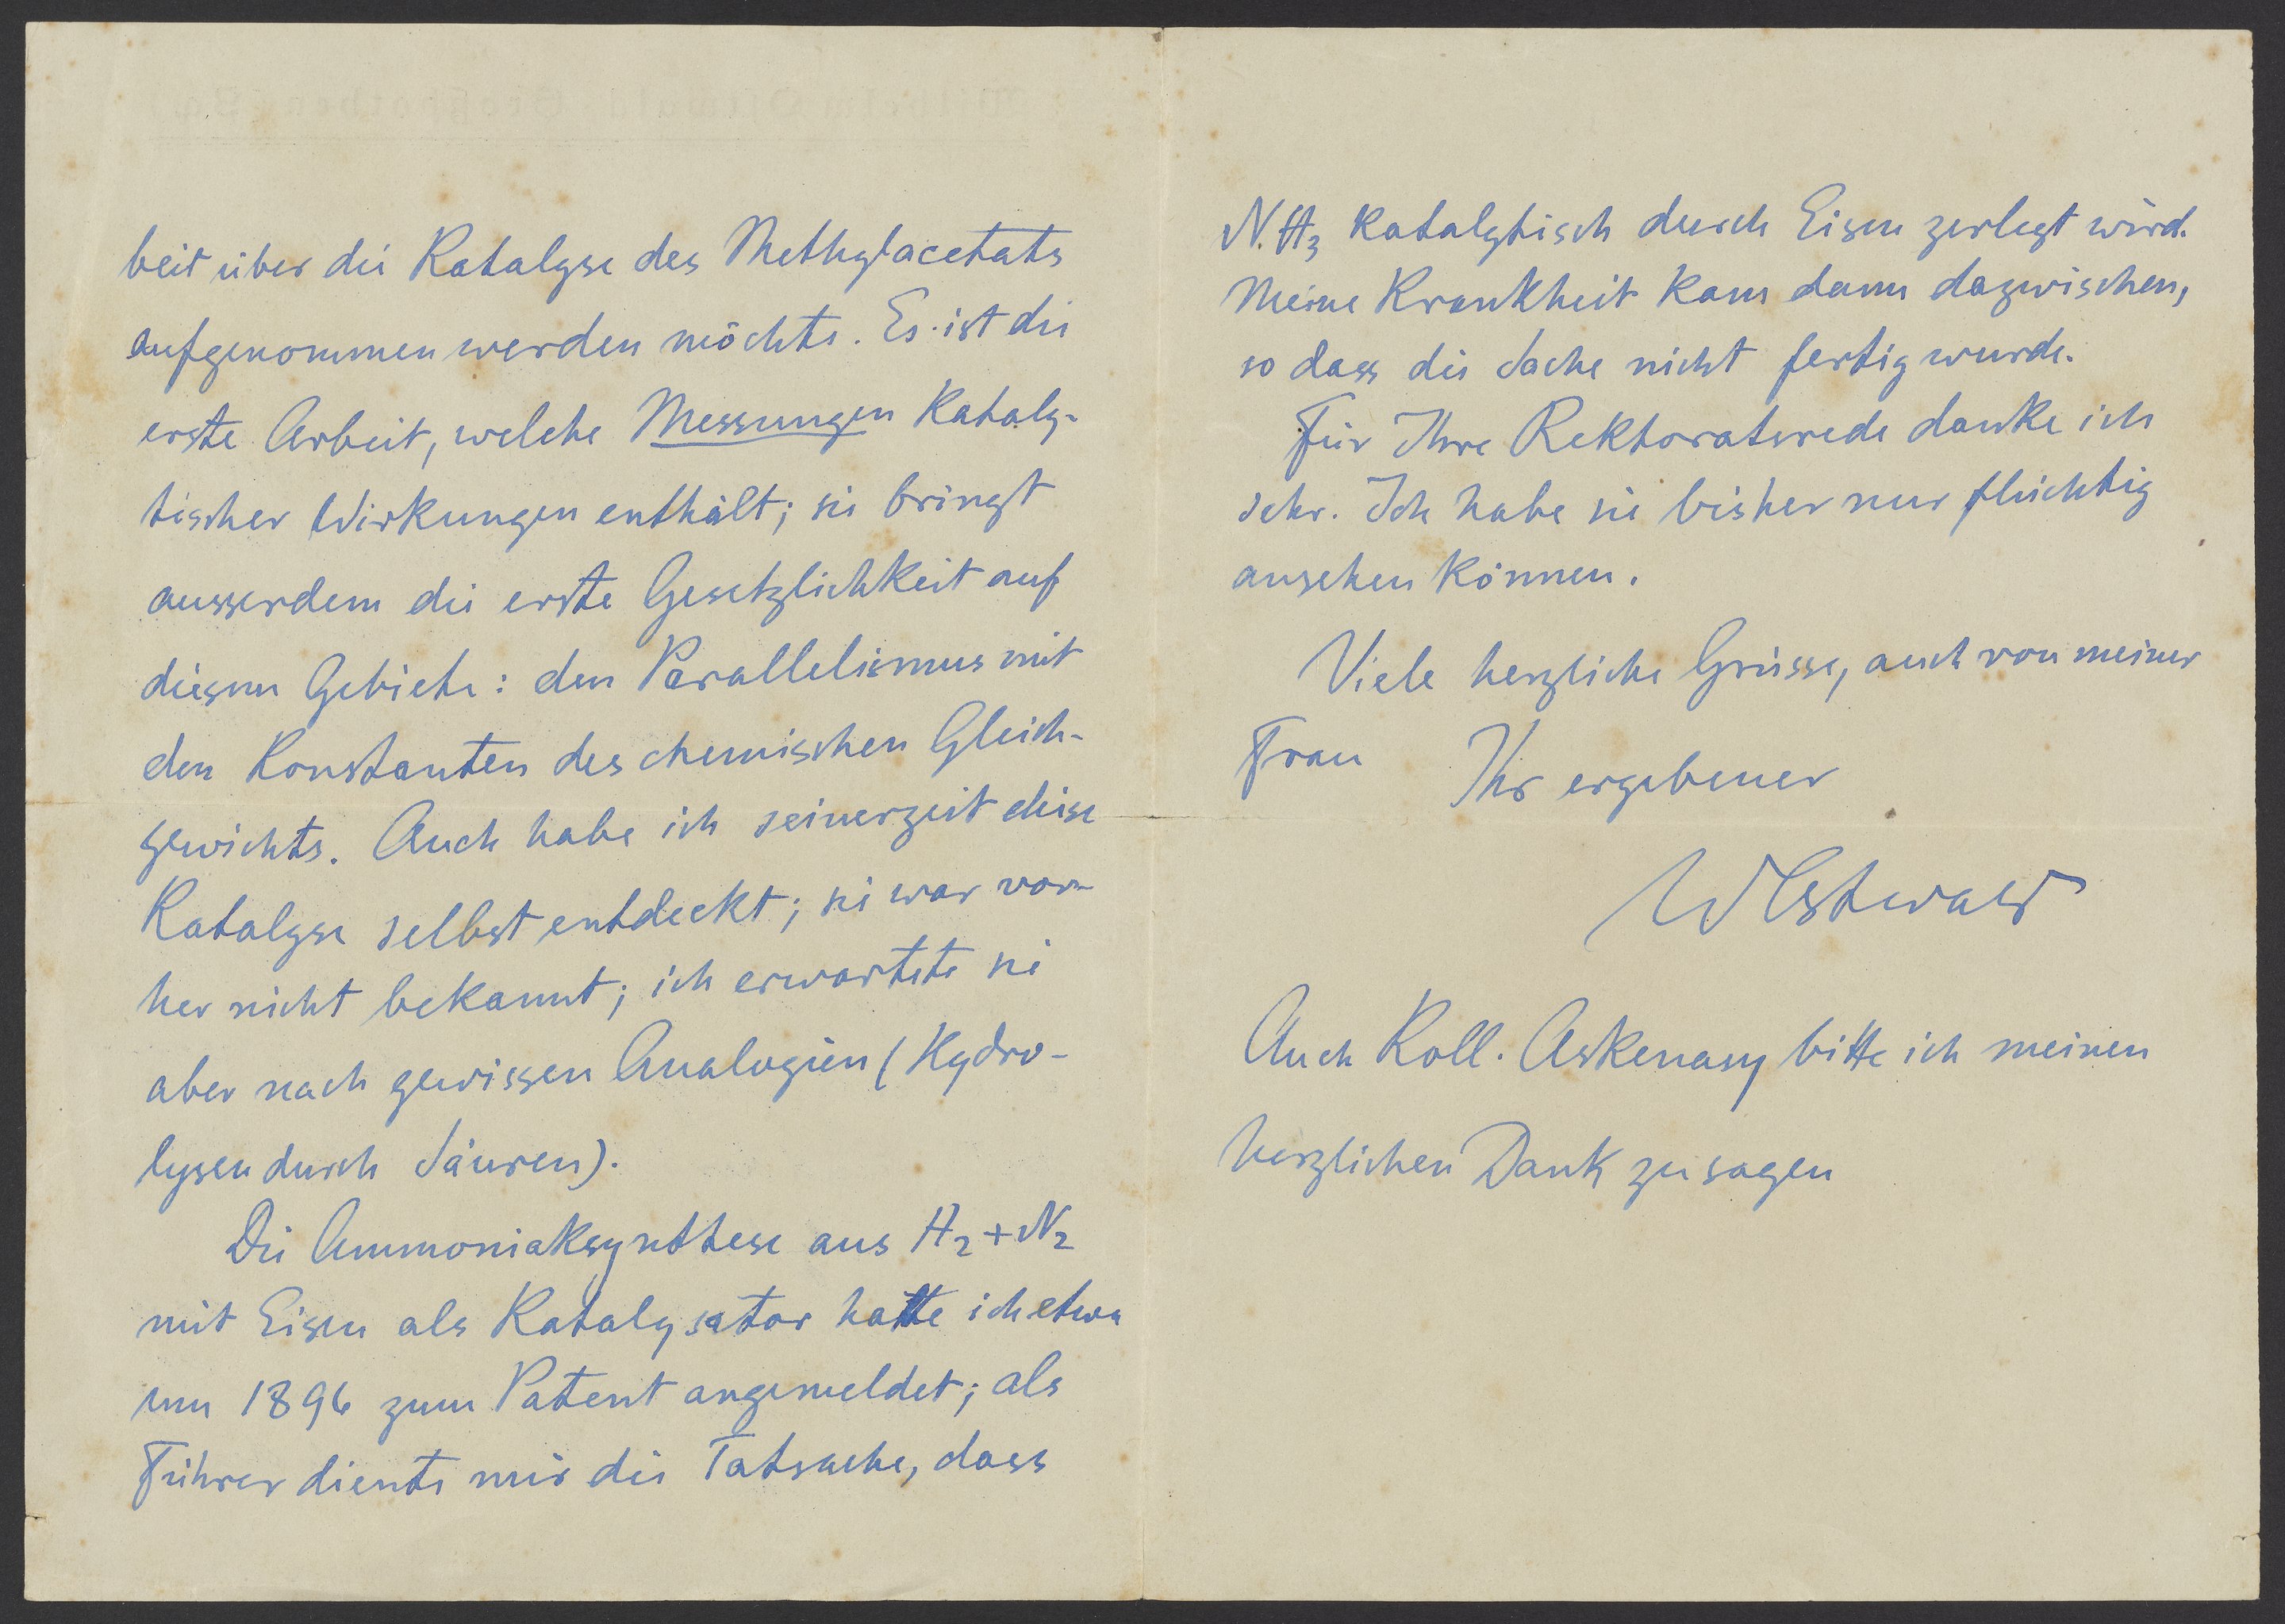 beit über die Katalyse des Methylacetats
aufgenommen werden möchte. Es ist die
erste Arbeit, welche Messungen kataly-
tischer Wirkungen enthält; sie bringt
ausserdem die erste Gesetzlichkeit auf
diesem Gebiete: den Parallelismus mit
den Konstanten des chemischen Gleich-
gewichts. Auch habe ich seinerzeit diese
Katalyse selbst entdeckt; sie war vor-
her nicht bekannt; ich erwartete sie
aber nach gewissen Analogien (Hydro-
lysen durch Säuren).
Die Ammoniaksynthese aus H₂+N₂
mit Eisen als Katalysator hatte ich etwa
um 1896 zum Patent angemeldet; als
Führer diente mir die Tatsache, dass
N.H₃ katalytisch durch Eisen zerlegt wird.
Meine Krankheit kam dann dazwischen,
so dass die Sache nicht fertig wurde.
Für Ihre Rektoratsrede danke ich
sehr. Ich habe sie bisher nur flüchtig
ansehen können.
Viele herzliche Grüsse, auch von meiner
Frau Ihr ergebener
WOstwald
Auch Koll. Askenasy bitte ich meinen
herzlichen Dank zu sagen